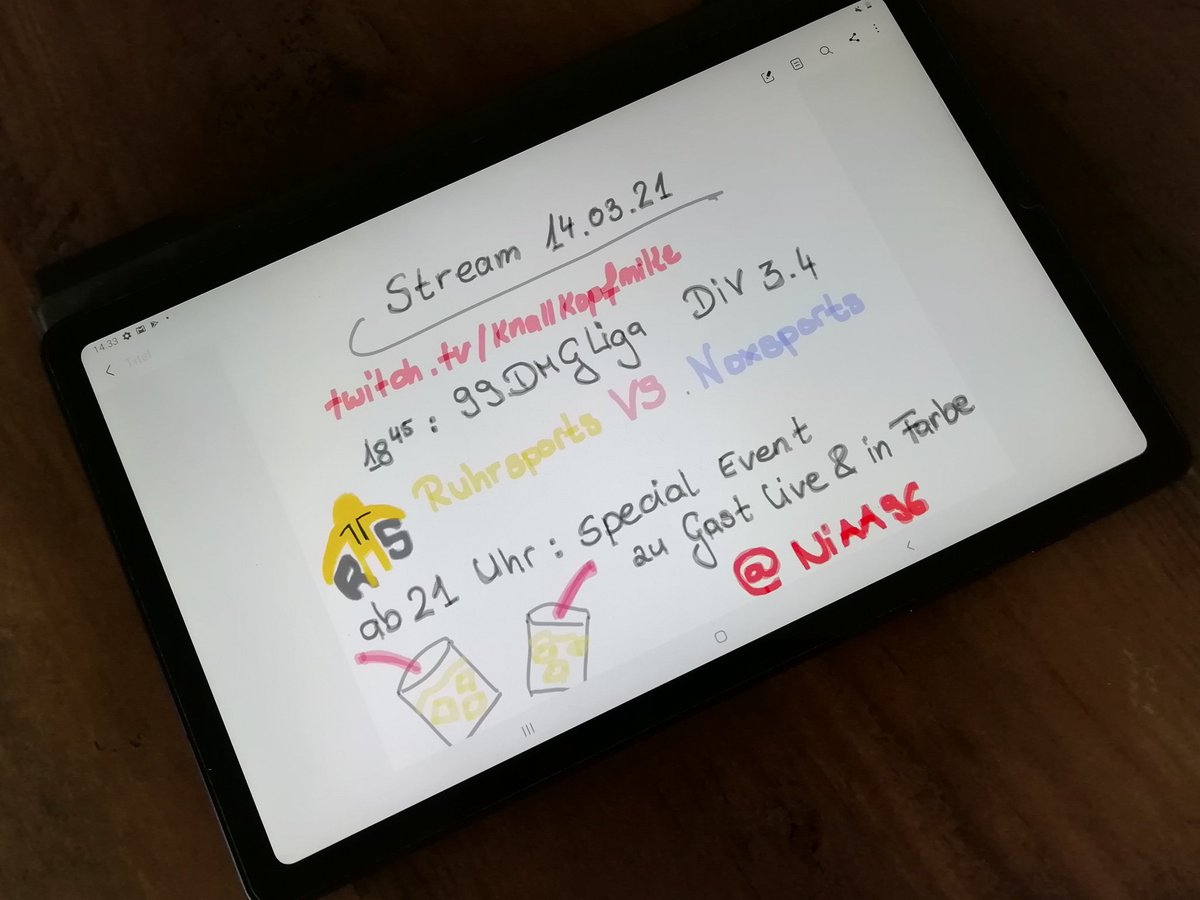 14:33
Titel
Stream 14.03.21
twitch.tv/Knallkopfmike
18 45 : 99DMG Liga Div 3.4
Ruhrsports VS. Noxsports
RTS
ab 21 Uhr : Special Event
zu Gast Live & in Farbe
@ NiAA96